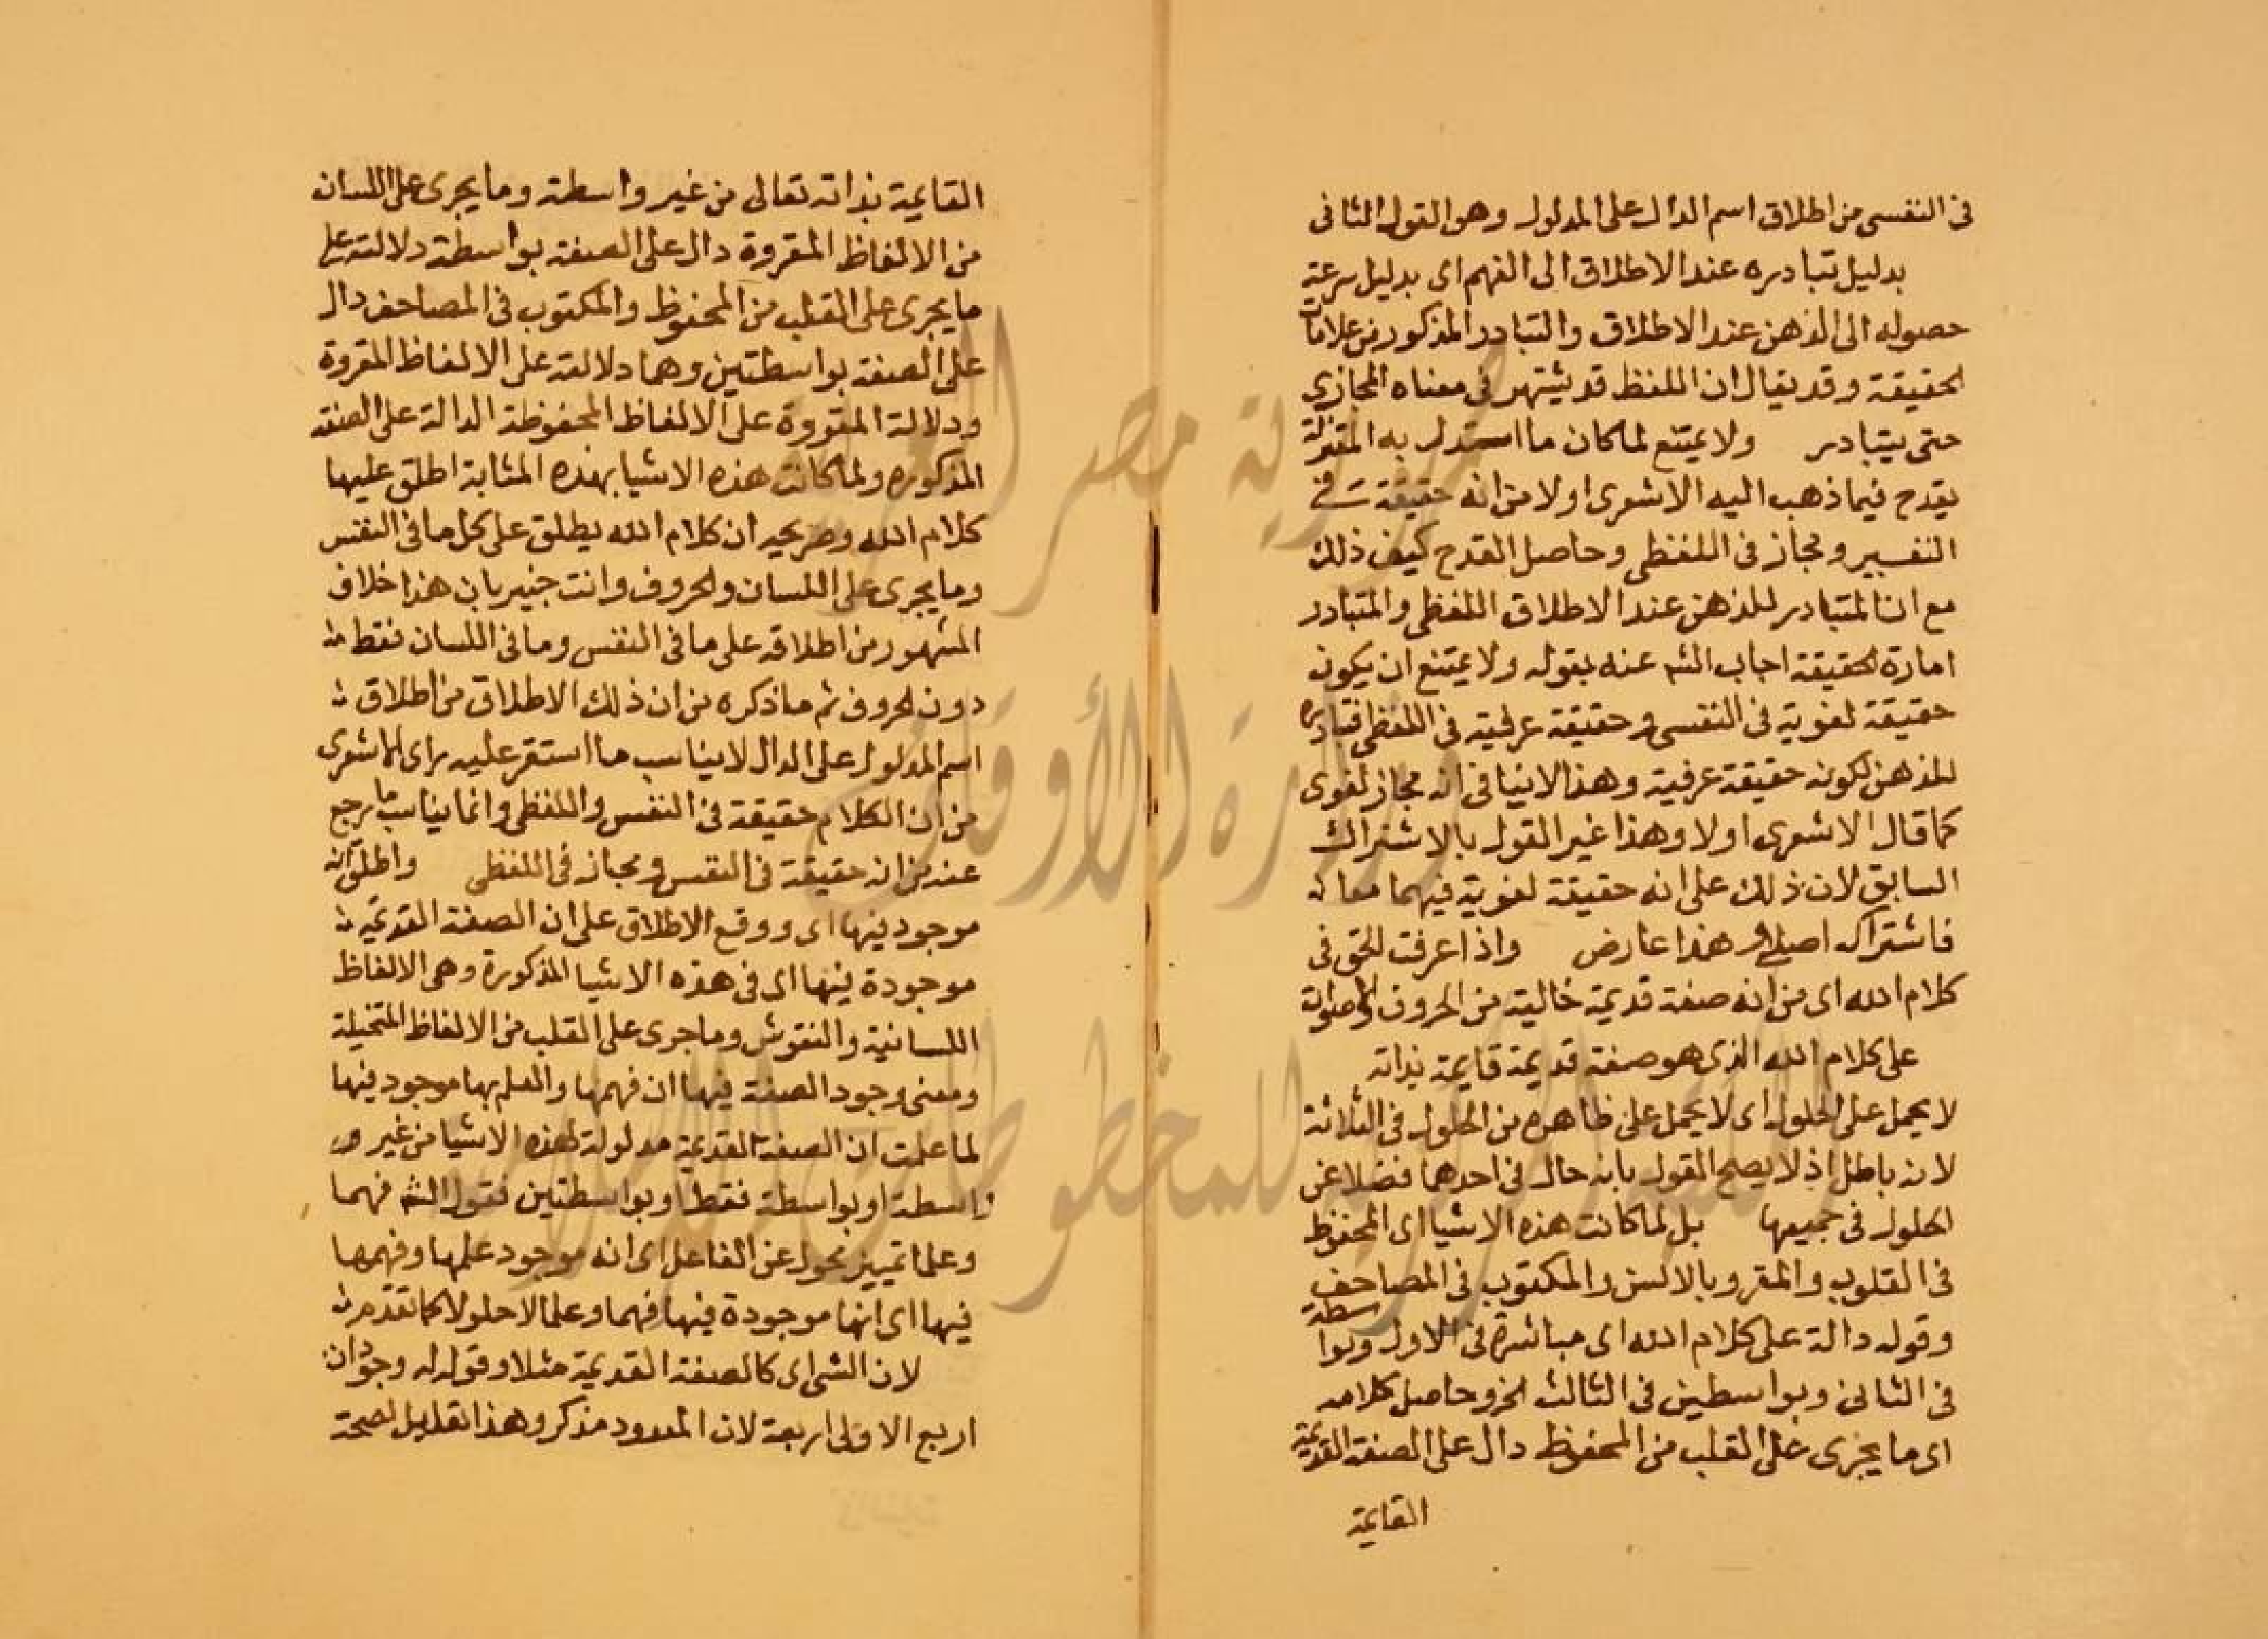 في النفسي من اطلاق اسم الدال على المدلول وهو القول الثاني
بدليل تبادره عند الاطلاق الى الفهم اى بدليل سرعة
حصوله الى الذهن عند الاطلاق والتبادر المذكور من علامات
الحقيقة وقد يقال ان اللفظ قد يشتهر في معناه المجازي
حتى يتبادر ولا يمتنع لما كان ما استدل به المعتزلة
يقدح فيما ذهب اليه الاشعرى اولا من انه حقيقة في
النفسي ومجاز في اللفظي وحاصل القدح كيف ذلك
مع ان المتبادر للذهن عند الاطلاق اللفظي والمتبادر
امارة الحقيقة اجاب الشم عنه بقوله ولا يمتنع ان يكون
حقيقة لغوية في النفسي وحقيقة عرفية في اللفظي فتبادره
للذهن لكونه حقيقة عرفية وهذا لا ينافي انه مجاز لغوى
كما قال الاشعرى اولا وهذا غير القول بالاشتراك
السابق لان ذلك على انه حقيقة لغوية فيهما معا
فاشتراكه اصيلي وهذا عارض واذا عرفت الحق في
كلام الله اى من انه صفة قديمة خالية من الحروف والاصوات
على كلام الله الذى هو صفة قديمة قايمة بذاته
لا يحمل على الحلول اى لا يحمل على ظاهره من الحلول في الثلاثة
لانه باطل اذ لا يصح القول بانه حال في احدهما فضلا عن
الحلول في جميعها بل لما كانت هذه الاشيا اى المحفوظ
في القلوب والمقرو بالالسن والمكتوب في المصاحف
وقوله دالة على كلام الله اى مباشرة في الاول وبواسطة
في الثانى وبواسطين في الثالث الخ وحاصل كلامه
اى ما يجرى على القلب من المحفوظ دال على الصفة القديمة
القايمة
القايمة بذاته تعالى من غير واسطة وما يجرى على اللسان
من الالفاظ المقروة دال على الصفة بواسطة دلالته على
ما يجرى على القلب من المحفوظ والمكتوب في المصاحف دال
على الصفة بواسطتين وهما دلالته على الالفاظ المقروة
ودلالة المقروة على الالفاظ المحفوظة الدالة على الصفة
المذكوره ولما كانت هذه الاشيا بهذه المثابة اطلق عليها
كلام الله وصريحه ان كلام الله يطلق على كل ما في النفس
وما يجرى على اللسان والحروف وانت خبير بان هذا خلاف
المشهور من اطلاقه على ما في النفس وما في اللسان فقط
دون الحروف ثم ما ذكره من ان ذلك الاطلاق من اطلاق
اسم المدلول على الدال لا يناسب ما استقر عليه راى الاشعرى
من ان الكلام حقيقة في النفس واللفظي وانما يناسب ما رجع
عنه من انه حقيقة في النفس ومجاز في اللفظي واطلق انه
موجود فيها اى ووقع الاطلاق على ان الصفة القديمة
موجودة فيها اى في هذه الاشيا المذكورة وهى الالفاظ
اللسانية والنقوش وما جرى على القلب من الالفاظ المتخيلة
ومعنى وجود الصفة فيها ان فهمها والعلم بها موجود فيها
لما علمت ان الصفة القديمة مدلولة لهذه الاشيا من غير و
واسطة او بواسطة فقط او بواسطتين فقول الشم فهما
وعلما تمييز محول عن الفاعل اى انه موجود علمها وفهمها
فيها اى انها موجودة فيها فهما وعلما لا حلولا كما تقدم
لان الشى اى كالصفة القديمة مثلا وقوله له وجودان
اربع الاولى اربعة لان المعدود مذكر وهذا تعليل لصحة
جمهورية مصر العربية
وزارة الأوقاف